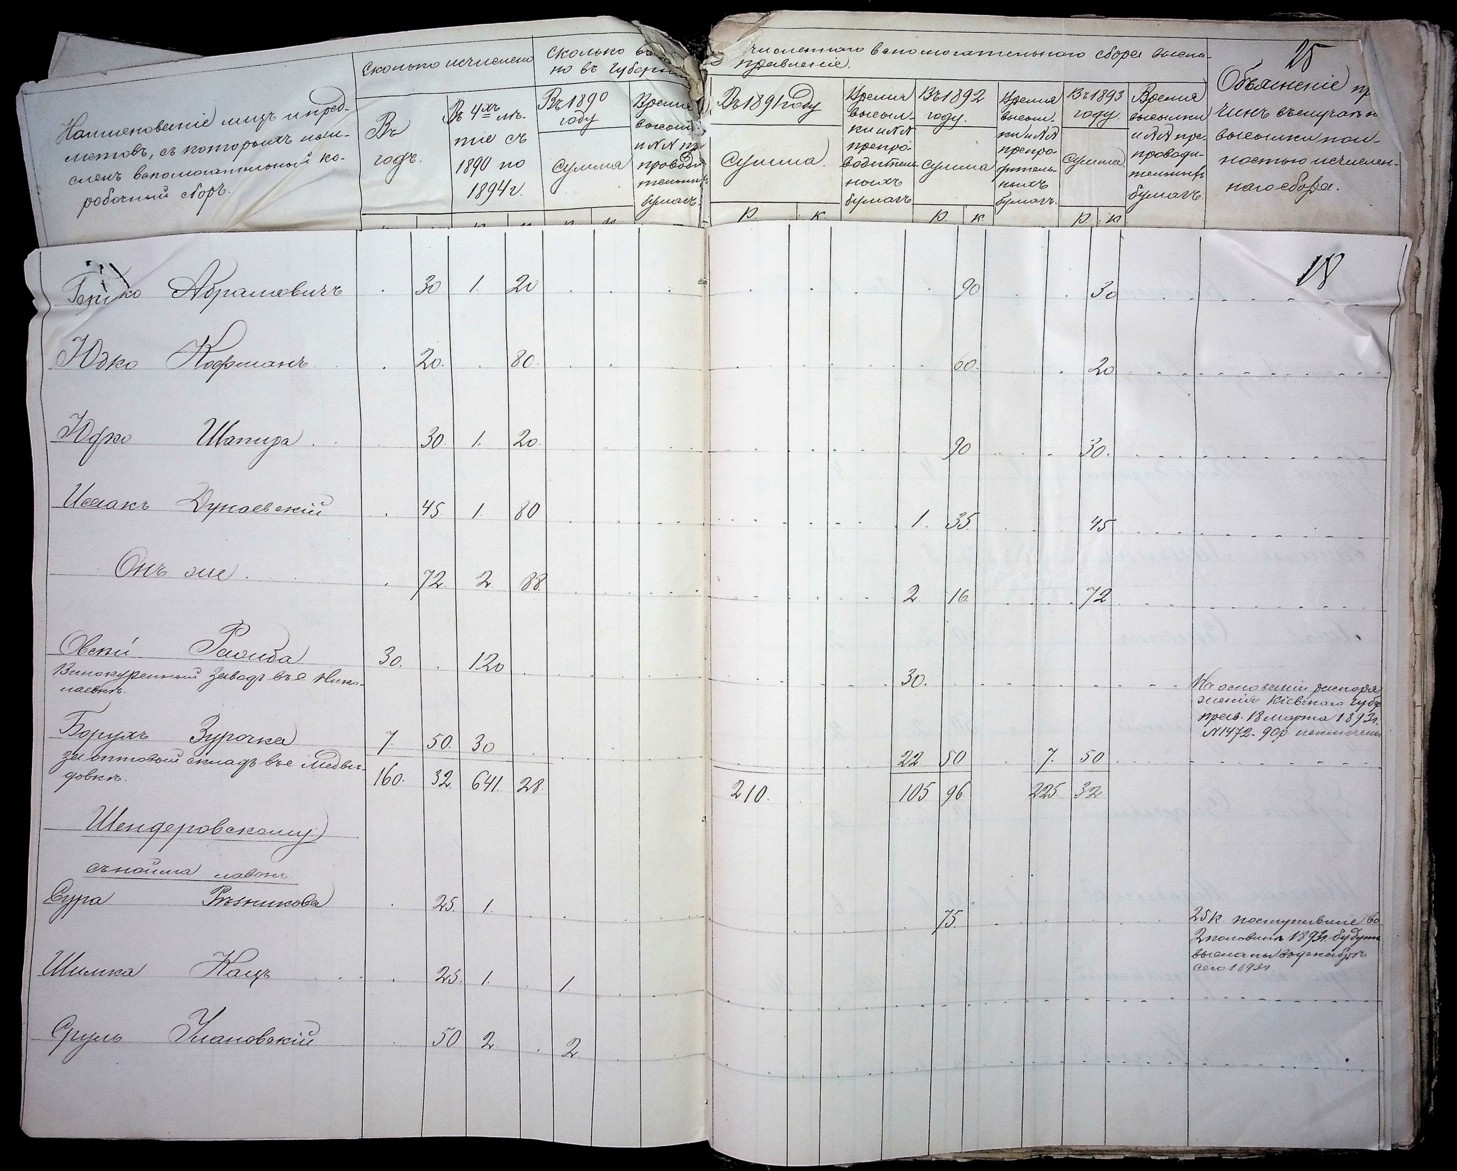 25
Наименованіе лицъ и пред-
метовъ, съ которыхъ исчи-
сленъ вспомогательный ко-
робочный сборъ.
Сколько исчислено
Въ
годъ.
Въ 4хъ лѣ-
тіе съ
1890 по
1894 г.
Сколько
но въ Губерн
Въ 1890
году
Сумма
Время
высыл
и №№ пр
провод
тельн
бумагъ
численнаго вспомогательнаго сбора
правленіе.
Въ 1891 году
Сумма.
Время
высыл-
ки и №№
препро-
водитель
ныхъ
бумагъ
Въ 1892
году.
Сумма
Время
высыл.
ки и №№
препро
водитель
ныхъ
бумагъ.
Въ 1893
году
Сумма
Время
высылки
и №№ пре-
проводи-
тельныхъ
бумагъ.
Объясненіе пр
чинъ въ случаѣ н
высылки пол-
ностью исчислен-
наго сбора.
Р. К Р. К Р. К
18
Гершко Абрамовичъ 30 1. 20 90 30
Юдко Кофманъ 20. 80. 60. 20
Юдко Шапира 30 1. 20 90 30.
Исаакъ Дунаевскій 45 1. 80 1. 35 45
Онъ же 72 2 88 2 16 72
Овсей Раомба 30. 120 30.
Винокуренный заводъ въ с Нико-
лаевкѣ.
На основаніи распоря
женія Кіевскаго Губ
прав. 18 марта 1892 г.
№ 1472. 90 р
Борухъ Зурочка 7. 50. 30 22 50 7. 50
за оптовый складъ въ с Медвѣ-
довкѣ. 160. 32 641. 28 210. 105 96 225 32
Шендеровскому
съ найма лавокъ
Сура Рѣзникова 25. 1. 75.
25 к. поступившіе во
2 половинѣ 1893 г. будутъ
высланы въ декабрѣ
сего 1893 г.
Шимка Кацъ 25. 1. 1
Сруль Улановскій 50 2 2